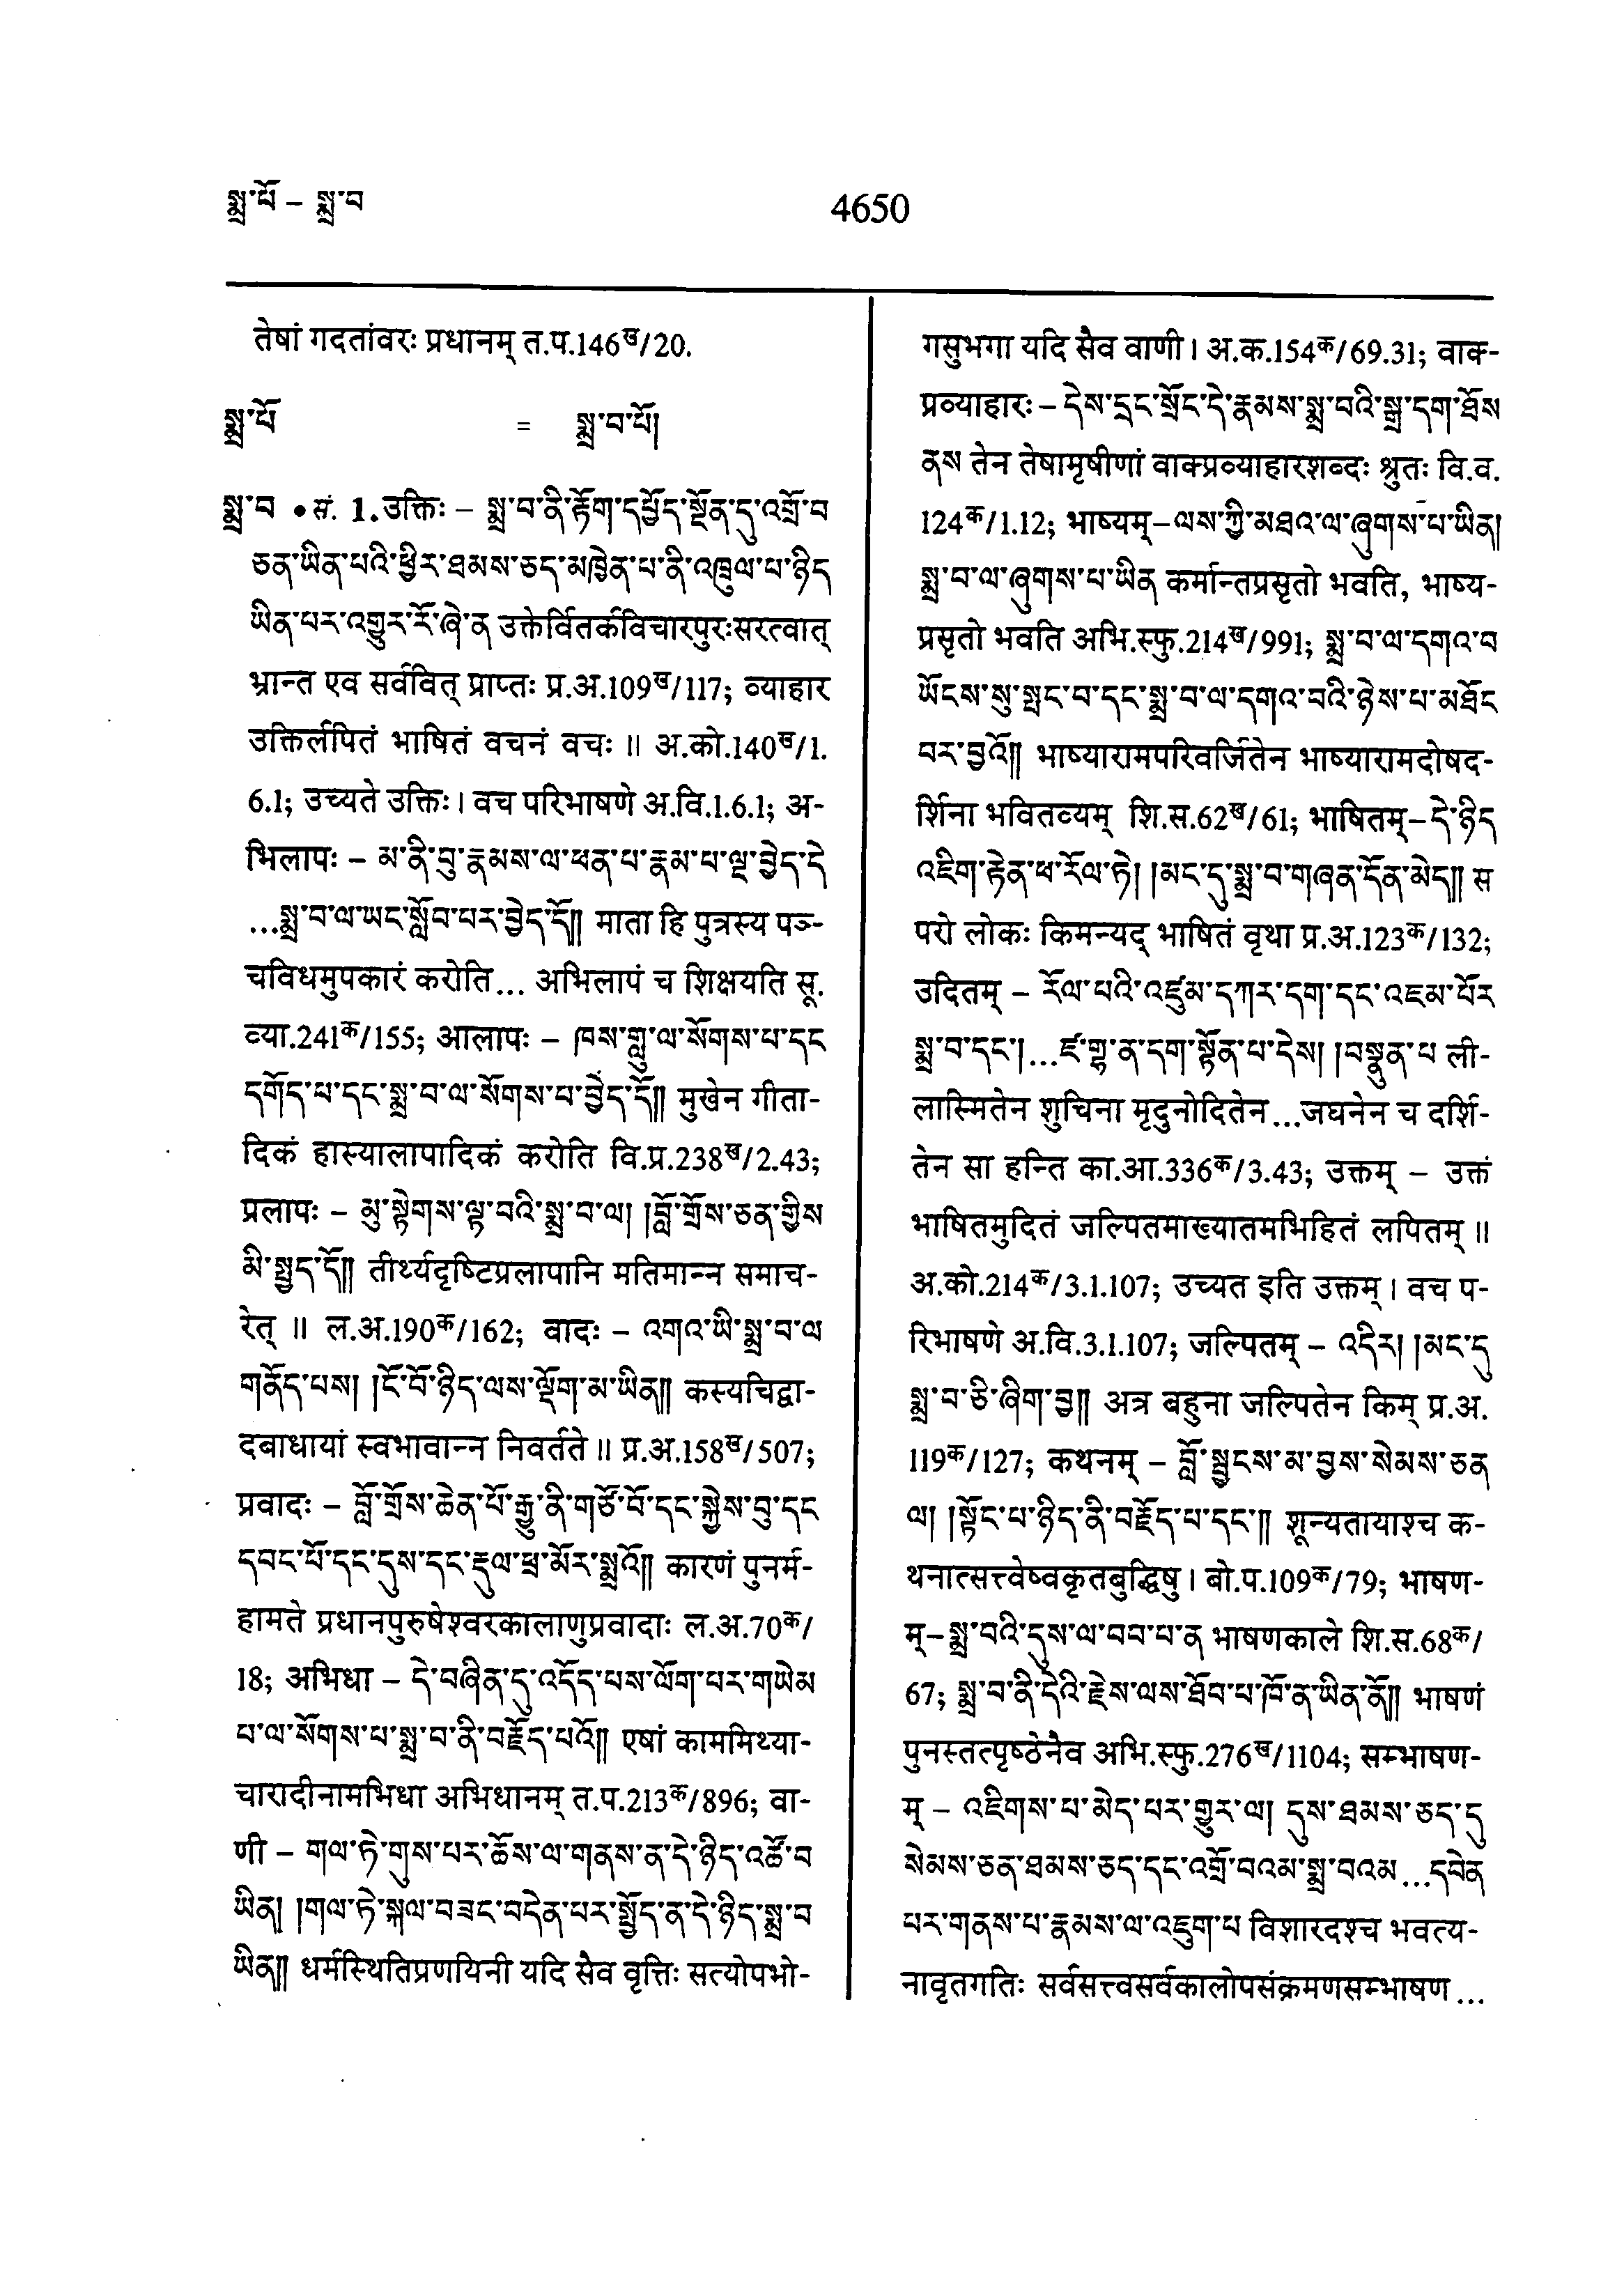 སྨྲ་པོ – སྨྲ་བ
4650
तेषां गदतांवरः प्रधानम् त.प.146ख/20.
སྨྲ་པོ = སྨྲ་བ་པོ།
སྨྲ་བ • सं. 1. उक्तिः – སྨྲ་བ་ནི་རྟོག་དཔྱོད་སྔོན་དུ་འགྲོ་བ
ཅན་ཡིན་པའི་ཕྱིར་ཐམས་ཅད་མཁྱེན་པ་ནི་འཁྲུལ་པ་ཉིད
ཡིན་པར་འགྱུར་རོ་ཞེ་ན उक्तेर्वितर्कविचारपुरःसरत्वात्
भ्रान्त एव सर्ववित् प्राप्तः प्र.अ.109ख/117; व्याहार
उक्तिर्लपितं भाषितं वचनं वचः ॥ अ.को.140ख/1.
6.1; उच्यते उक्तिः। वच परिभाषणे अ.वि.1.6.1; अ-
भिलापः – མ་ནི་བུ་རྣམས་ལ་ཕན་པ་རྣམ་པ་ལྔ་བྱེད་དེ
...སྨྲ་བ་ལ་ཡང་སློབ་པར་བྱེད་དོ༎ माता हि पुत्रस्य पञ्-
चविधमुपकारं करोति... अभिलापं च शिक्षयति सू.
व्या.241क/155; आलापः – ཁས་གླུ་ལ་སོགས་པ་དང
དགོད་པ་དང་སྨྲ་བ་ལ་སོགས་པ་བྱེད་དོ༎ मुखेन गीता-
दिकं हास्यालापादिकं करोति वि.प्र.238ख/2.43;
प्रलापः – མུ་སྟེགས་ལྟ་བའི་སྨྲ་བ་ལ། །བློ་གྲོས་ཅན་གྱིས
མི་སྤྱད་དོ༎ तीर्थ्यदृष्टिप्रलापानि मतिमान्न समाच-
रेत् ॥ ल.अ.190क/162; वादः – འགའ་ཡི་སྨྲ་བ་ལ
གནོད་པས། །ངོ་བོ་ཉིད་ལས་ལྡོག་མ་ཡིན༎ कस्यचिद्वा-
दबाधायां स्वभावान्न निवर्तते ॥ प्र.अ.158ख/507;
प्रवादः – བློ་གྲོས་ཆེན་པོ་རྒྱུ་ནི་གཙོ་བོ་དང་སྐྱེས་བུ་དང
དབང་པོ་དང་དུས་དང་རྡུལ་ཕྲ་མོར་སྨྲའོ༎ कारणं पुनर्म-
हामते प्रधानपुरुषेश्वरकालाणुप्रवादाः ल.अ.70क/
18; अभिधा – དེ་བཞིན་དུ་འདོད་པས་ལོག་པར་གཡེམ
པ་ལ་སོགས་པ་སྨྲ་བ་ནི་བརྗོད་པའོ༎ एषां काममिथ्या-
चारादीनामभिधा अभिधानम् त.प.213क/896; वा-
णी – གལ་ཏེ་གུས་པར་ཆོས་ལ་གནས་ན་དེ་ཉིད་འཚོ་བ
ཡིན། །གལ་ཏེ་སྐལ་བཟང་བདེན་པར་སྤྱོད་ན་དེ་ཉིད་སྨྲ་བ
ཡིན༎ धर्मस्थितिप्रणयिनी यदि सैव वृत्तिः सत्योपभो-
गसुभगा यदि सैव वाणी। अ.क.154क/69.31; वाक्-
प्रव्याहारः – དེས་དྲང་སྲོང་དེ་རྣམས་སྨྲ་བའི་སྒྲ་དག་ཐོས
ནས तेन तेषामृषीणां वाक्प्रव्याहारशब्दः श्रुतः वि.व.
124क/1.12; भाष्यम् – ལས་ཀྱི་མཐའ་ལ་ཞུགས་པ་ཡིན།
སྨྲ་བ་ལ་ཞུགས་པ་ཡིན कर्मान्तप्रसृतो भवति, भाष्य-
प्रसृतो भवति अभि.स्फु.214ख/991; སྨྲ་བ་ལ་དགའ་བ
ཡོངས་སུ་སྤང་བ་དང་སྨྲ་བ་ལ་དགའ་བའི་ཉེས་པ་མཐོང
བར་བྱའོ༎ भाष्यारामपरिवर्जितेन भाष्यारामदोषद-
र्शिना भवितव्यम् शि.स.62ख/61; भाषितम् – དེ་ཉིད
འཇིག་རྟེན་ཕ་རོལ་ཏེ། །མང་དུ་སྨྲ་བ་གཞན་དོན་མེད༎ स
परो लोकः किमन्यद् भाषितं वृथा प्र.अ.123क/132;
उदितम् – རོལ་པའི་འཛུམ་དཀར་དག་དང་འཇམ་པོར
སྨྲ་བ་དང་།...ཛ་གྷ་ན་དག་སྟོན་པ་དེས། །བསྣུན་པ ली-
लास्मितेन शुचिना मृदुनोदितेन...जघनेन च दर्शि-
तेन सा हन्ति का.आ.336क/3.43; उक्तम् – उक्तं
भाषितमुदितं जल्पितमाख्यातमभिहितं लपितम् ॥
अ.को.214क/3.1.107; उच्यत इति उक्तम्। वच प-
रिभाषणे अ.वि.3.1.107; जल्पितम् – འདིར། །མང་དུ
སྨྲ་བ་ཅི་ཞིག་བྱ༎ अत्र बहुना जल्पितेन किम् प्र.अ.
119क/127; कथनम् – བློ་སྦྱངས་མ་བྱས་སེམས་ཅན
ལ། །སྟོང་པ་ཉིད་ནི་བརྗོད་པ་དང་༎ शून्यतायाश्च क-
थनात्सत्त्वेष्वकृतबुद्धिषु। बो.प.109क/79; भाषण-
म् – སྨྲ་བའི་དུས་ལ་བབ་པ་ན भाषणकाले शि.स.68क/
67; སྨྲ་བ་ནི་དེའི་རྗེས་ལས་ཐོབ་པ་ཁོ་ན་ཡིན་ནོ༎ भाषणं
पुनस्तत्पृष्ठेनैव अभि.स्फु.276ख/1104; सम्भाषण-
म् – འཇིགས་པ་མེད་པར་གྱུར་ལ། དུས་ཐམས་ཅད་དུ
སེམས་ཅན་ཐམས་ཅད་དང་འགྲོ་བའམ་སྨྲ་བའམ...དབེན
པར་གནས་པ་རྣམས་ལ་འཇུག་པ विशारदश्च भवत्य-
नावृतगतिः सर्वसत्त्वसर्वकालोपसंक्रमणसम्भाषण...